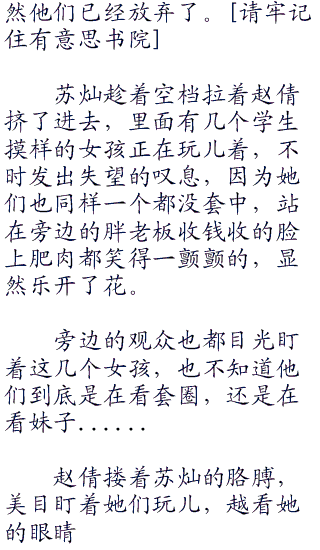 然他们已经放弃了。[请牢记
住有意思书院]
苏灿趁着空档拉着赵倩
挤了进去，里面有几个学生
摸样的女孩正在玩儿着，不
时发出失望的叹息，因为她
们也同样一个都没套中，站
在旁边的胖老板收钱收的脸
上肥肉都笑得一颤颤的，显
然乐开了花。
旁边的观众也都目光盯
着这几个女孩，也不知道他
们到底是在看套圈，还是在
看妹子......
赵倩搂着苏灿的胳膊，
美目盯着她们玩儿，越看她
的眼睛